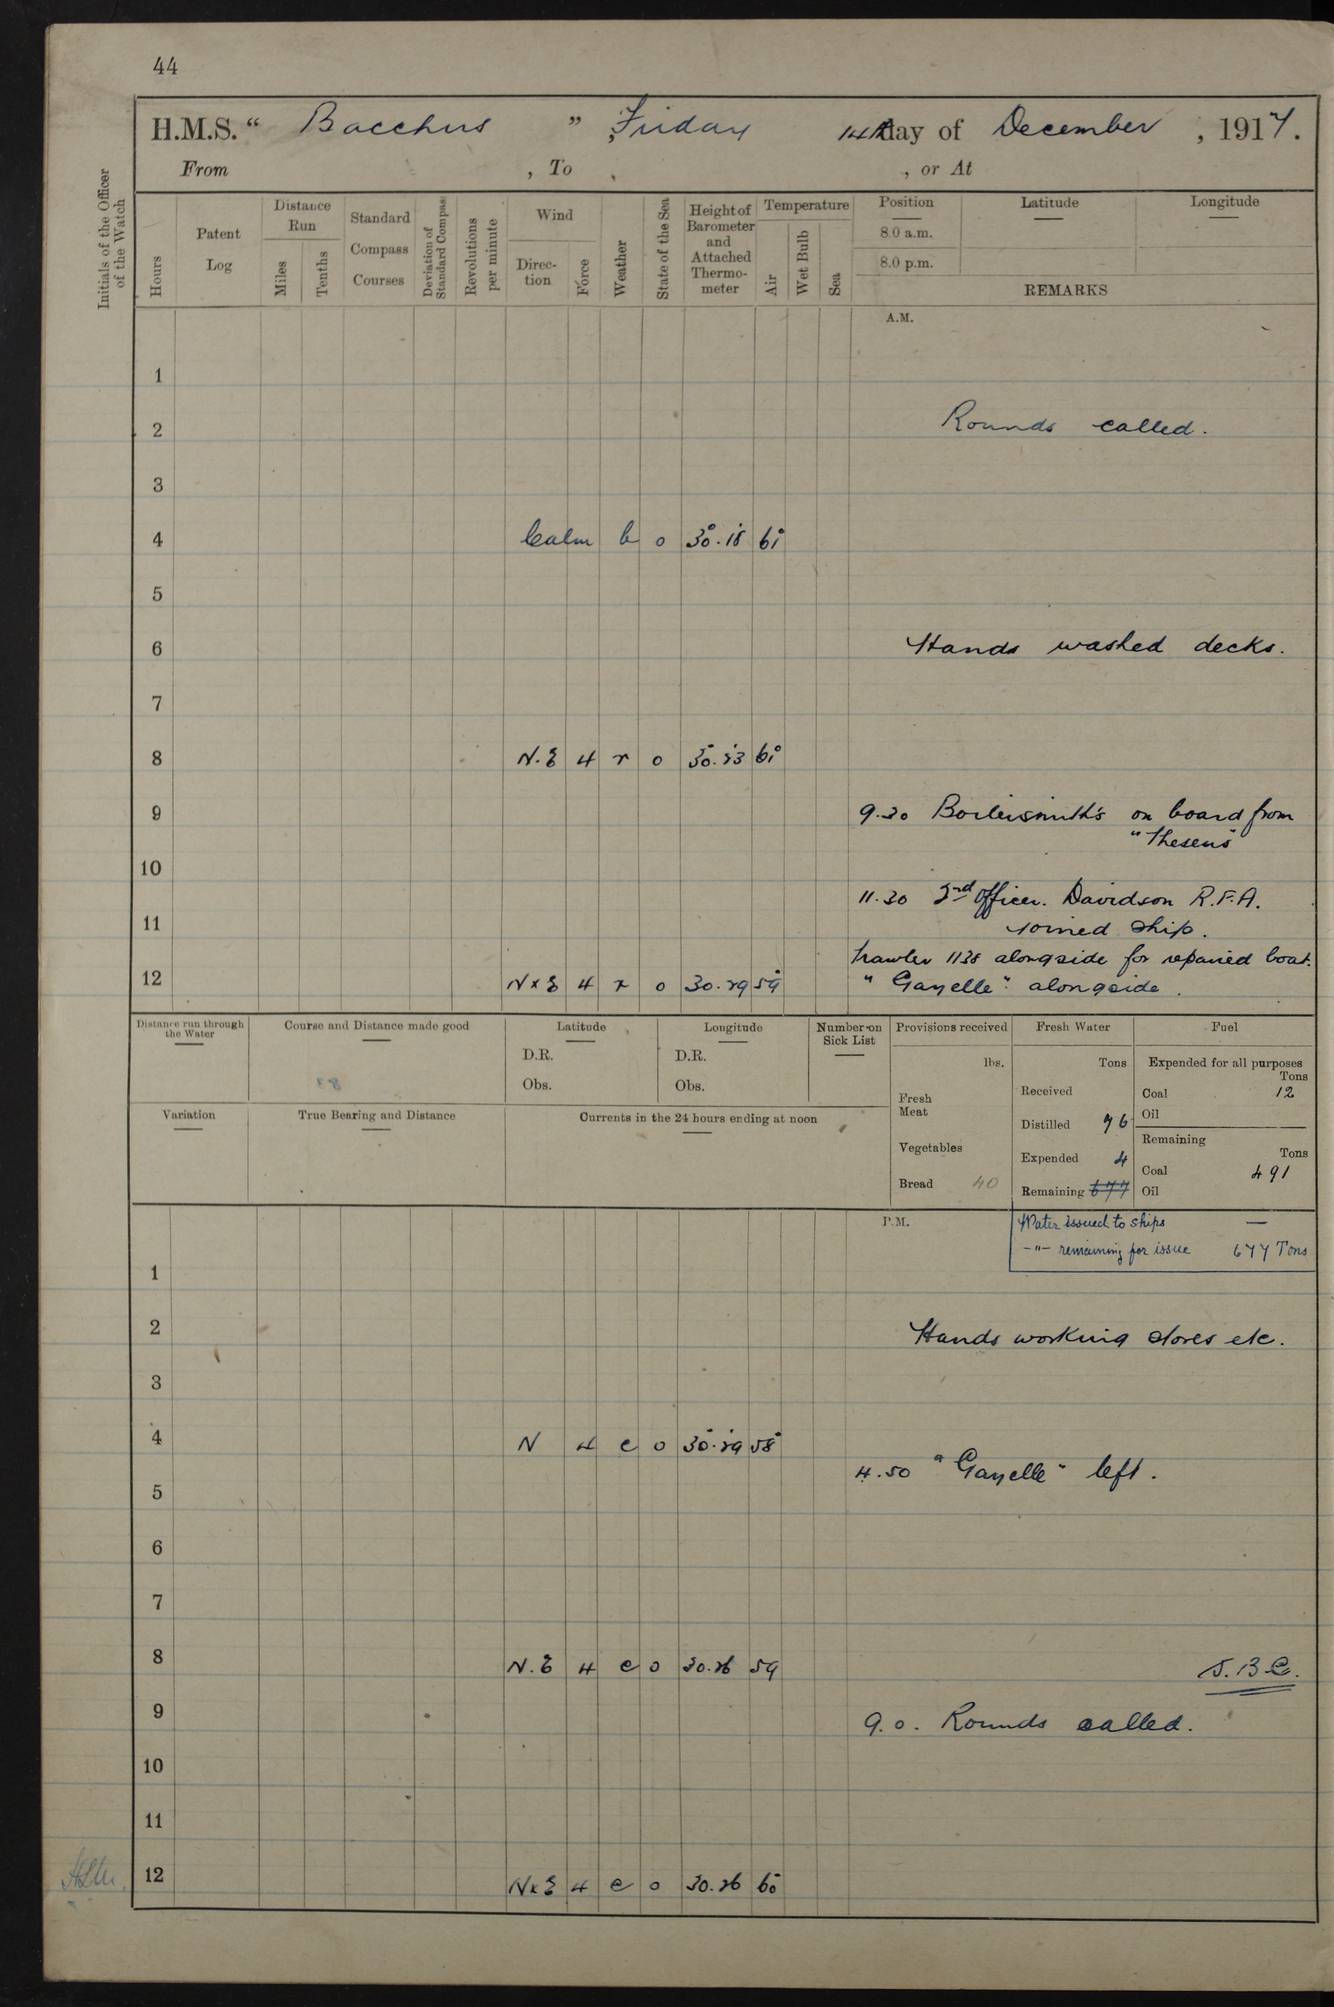 44
H.M.S. “ Bacchus ” , Friday 14th day of December , 1917.
From , To , or At
Initials of the Officer of the Watch
Hours
Patent Log
Distance Run
Miles
Tenths
Standard Compass Courses
Deviation of Standard Compass
Revolutions per minute
Wind
Direction
Force
Weather
State of the Sea
Height of Barometer and Attached Thermometer
Temperature
Air
Wet Bulb
Sea
Position
8.0 a.m.
8.0 p.m.
Latitude
Longitude
REMARKS
A.M.
1
2 Rounds called.
3
4 Calm b o 30.18 61
5
6 Hands washed decks.
7
8 N.E 4 r o 30.23 61
9 9.30 Boilersmith's on board from
"Theseus"
10
11.30 3rd Officer. Davidson R.F.A.
11 joined ship.
Trawler 1138 alongside for repaired boat.
12 NxE 4 r o 30.29 59 "Gazelle" alongside.
Distance run through the Water
Course and Distance made good
Latitude
D.R.
Obs.
Longitude
D.R.
Obs.
Number on Sick List
Variation
True Bearing and Distance
Currents in the 24 hours ending at noon
Provisions received
lbs.
Fresh Meat
Vegetables
Bread 40
Fresh Water
Tons
Received
Distilled 76
Expended 4
Remaining 677
Fuel
Expended for all purposes
Tons
Coal 12
Oil
Remaining
Tons
Coal 491
Oil
P.M.
Water issued to ships —
-"- remaining for issue 677 Tons
1
2 Hands working stores etc.
3
4 N 4 c o 30.29 58
4.50 "Gazelle" left.
5
6
7
8 N.E 4 c o 30.26 59
J.B.C.
9 9.0. Rounds called.
10
11
12 NxE 4 c o 30.26 60